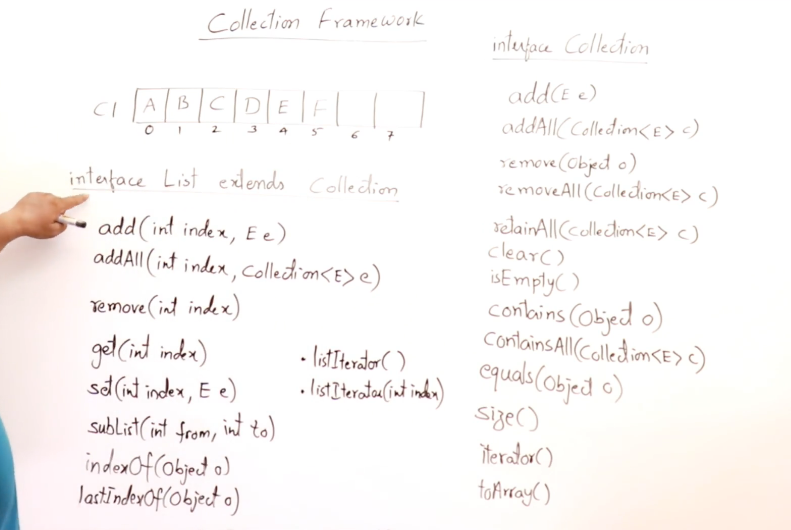 Collection Framework
C1 A B C D E F
0 1 2 3 4 5 6 7
interface List extends Collection
add(int index, E e)
addAll(int index, Collection<E> e)
remove(int index)
get(int index)
set(int index, E e)
subList(int from, int to)
indexOf(Object o)
lastIndexOf(Object o)
• listIterator()
• listIterator(int index)
interface Collection
add(E e)
addAll(Collection<E> c)
remove(Object o)
removeAll(Collection<E> c)
retainAll(Collection<E> c)
clear()
isEmpty()
contains(Object o)
containsAll(Collection<E> c)
equals(Object o)
size()
iterator()
toArray()